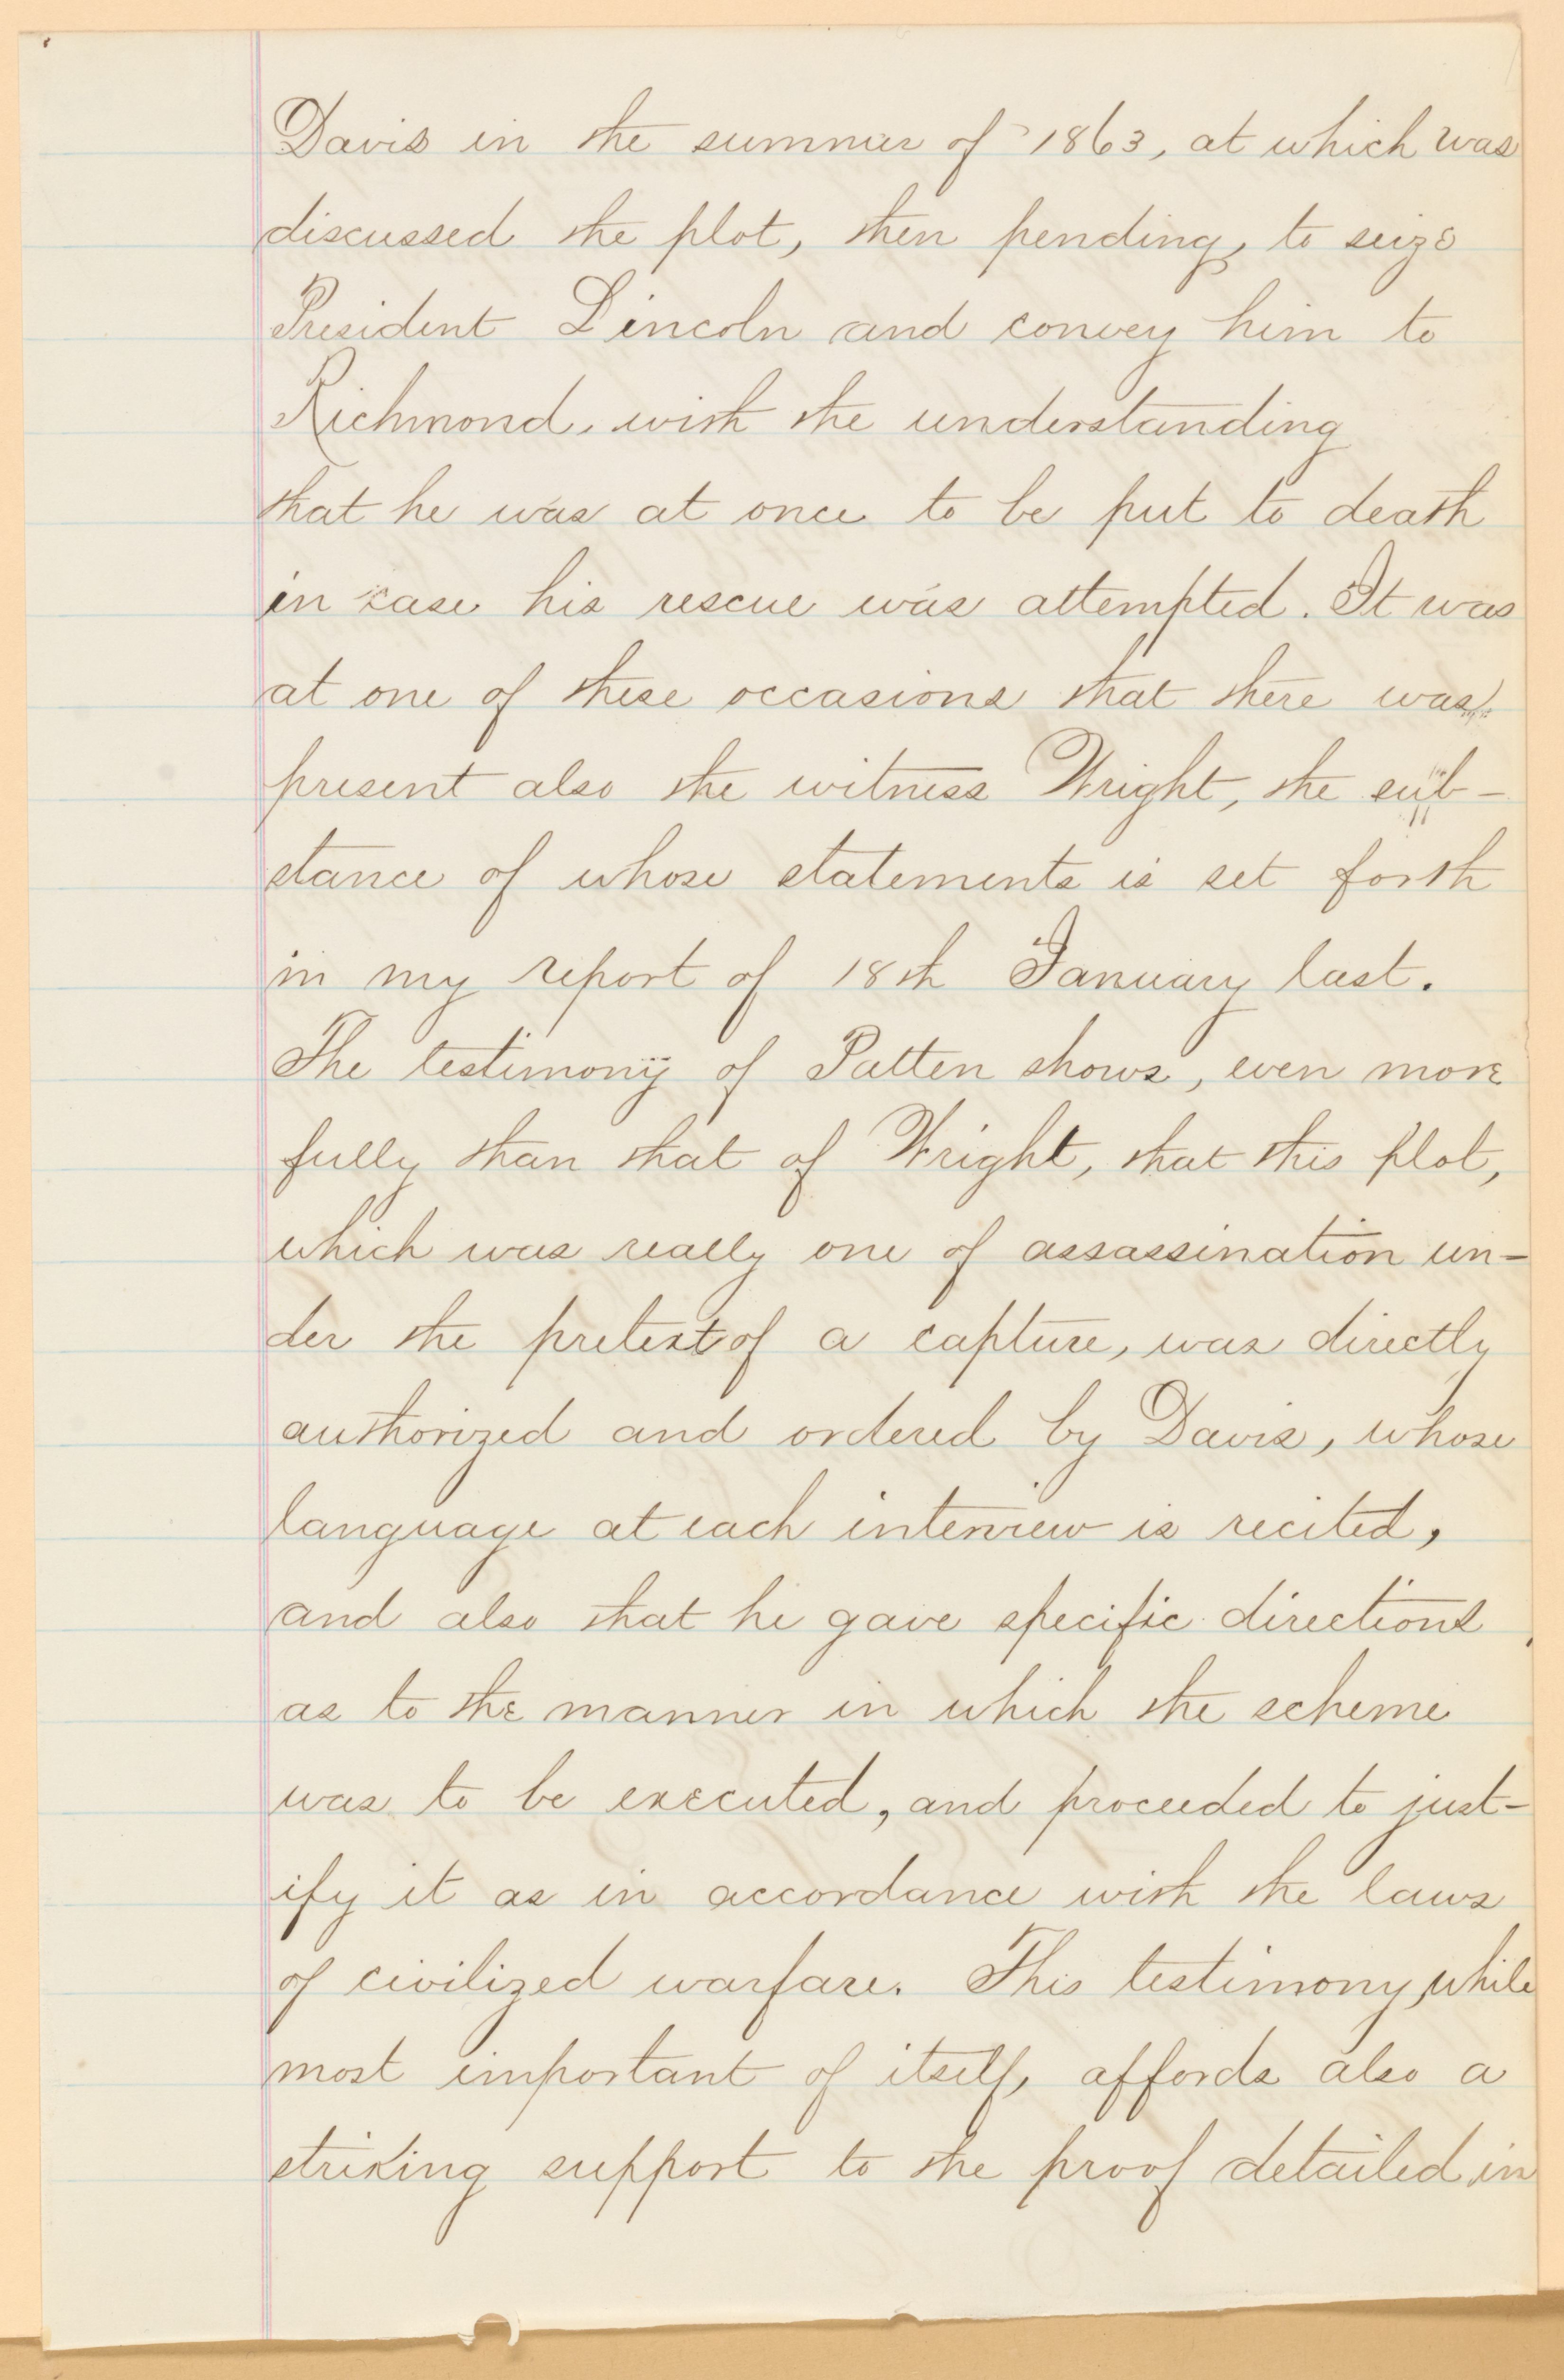 Davis in the summer of 1863, at which was
discussed the plot, then pending, to seize
President Lincoln and convey him to
Richmond, with the understanding
that he was at once to be put to death
in case his rescue was attempted. It was
at one of these occasions that there was
present also the witness Wright, the sub-
stance of whose statements is set forth
in my report of 18th January last.
The testimony of Patten shows, even more
fully than that of Wright, that this plot,
which was really one of assassination un-
der the pretext of a capture, was directly
authorized and ordered by Davis, whose
language at each interview is recited,
and also that he gave specific directions
as to the manner in which the scheme
was to be executed, and proceeded to just-
ify it as in accordance with the laws
of civilized warfare. This testimony, while
most important of itself, affords also a
striking support to the proof detailed in